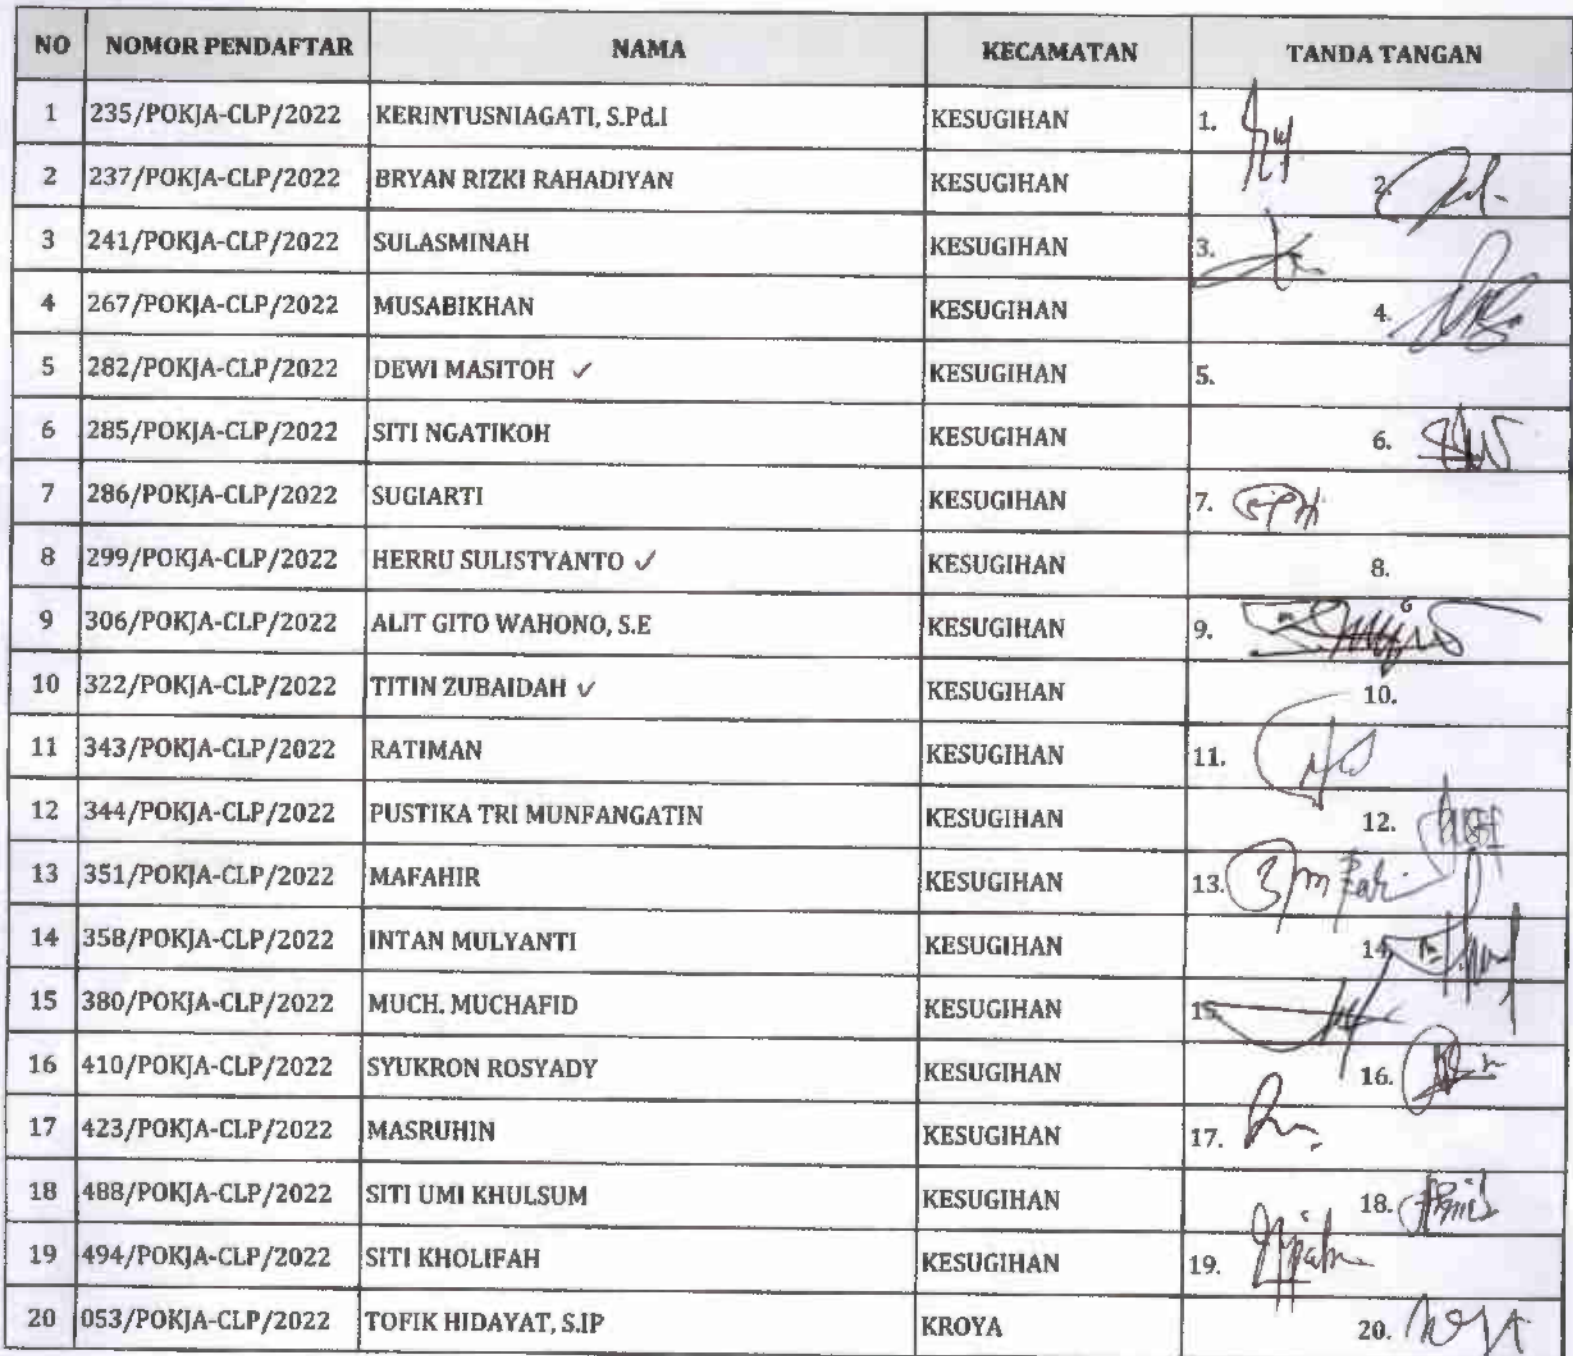 NO NOMOR PENDAFTAR NAMA KECAMATAN TANDA TANGAN
1 235/POKJA-CLP/2022 KERINTUSNIAGATI, S.Pd.I KESUGIHAN 1.
2 237/POKJA-CLP/2022 BRYAN RIZKI RAHADIYAN KESUGIHAN 2.
3 241/POKJA-CLP/2022 SULASMINAH KESUGIHAN 3.
4 267/POKJA-CLP/2022 MUSABIKHAN KESUGIHAN 4.
5 282/POKJA-CLP/2022 DEWI MASITOH ✓ KESUGIHAN 5.
6 285/POKJA-CLP/2022 SITI NGATIKOH KESUGIHAN 6.
7 286/POKJA-CLP/2022 SUGIARTI KESUGIHAN 7.
8 299/POKJA-CLP/2022 HERRU SULISTYANTO ✓ KESUGIHAN 8.
9 306/POKJA-CLP/2022 ALIT GITO WAHONO, S.E KESUGIHAN 9.
10 322/POKJA-CLP/2022 TITIN ZUBAIDAH ✓ KESUGIHAN 10.
11 343/POKJA-CLP/2022 RATIMAN KESUGIHAN 11.
12 344/POKJA-CLP/2022 PUSTIKA TRI MUNFANGATIN KESUGIHAN 12.
13 351/POKJA-CLP/2022 MAFAHIR KESUGIHAN 13.
14 358/POKJA-CLP/2022 INTAN MULYANTI KESUGIHAN 14.
15 380/POKJA-CLP/2022 MUCH. MUCHAFID KESUGIHAN 15.
16 410/POKJA-CLP/2022 SYUKRON ROSYADY KESUGIHAN 16.
17 423/POKJA-CLP/2022 MASRUHIN KESUGIHAN 17.
18 488/POKJA-CLP/2022 SITI UMI KHULSUM KESUGIHAN 18.
19 494/POKJA-CLP/2022 SITI KHOLIFAH KESUGIHAN 19.
20 053/POKJA-CLP/2022 TOFIK HIDAYAT, S.IP KROYA 20.